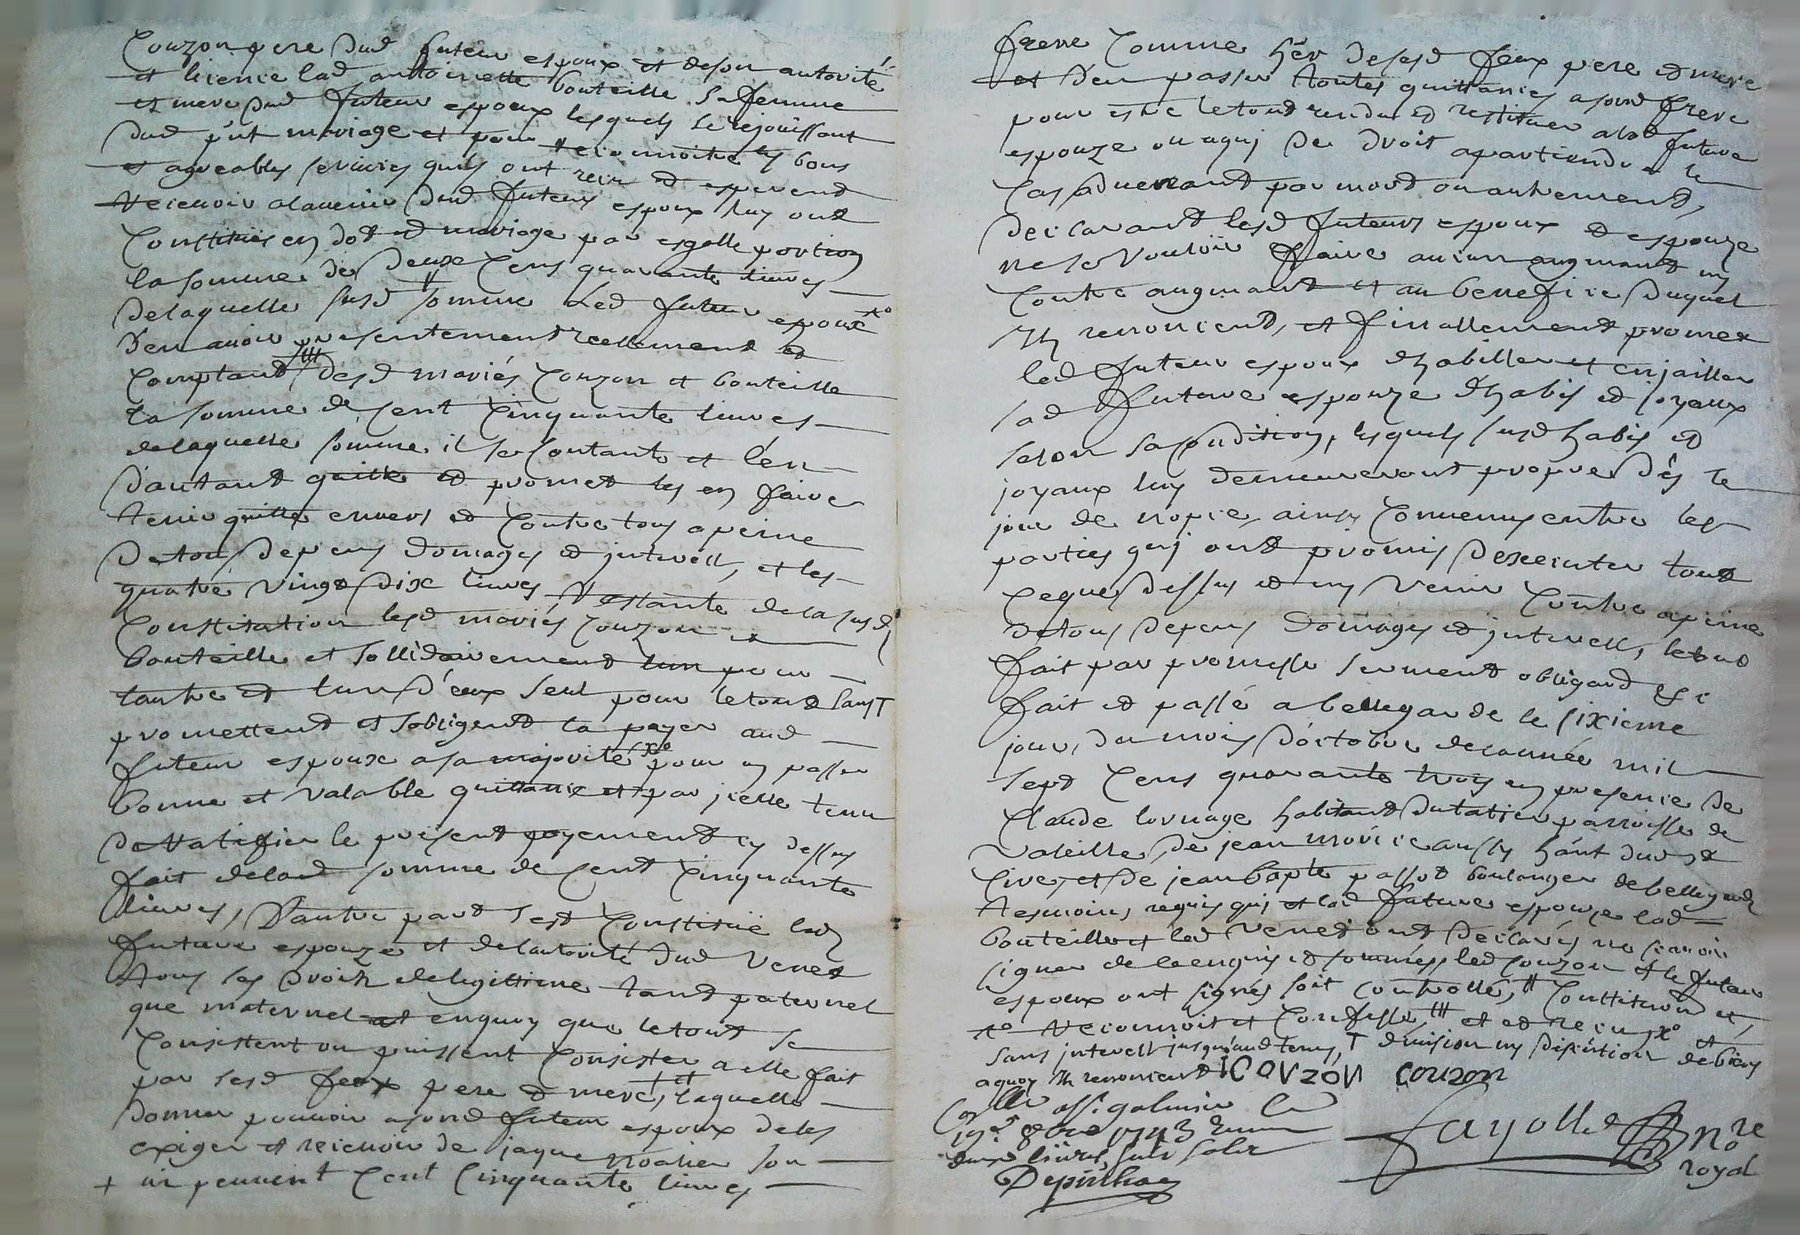 Couzon pere dud futeur espoux et deson autorité
et licenie lad anthoinette bouteille sa femme
et mere dud futeur espoux lesquels se rejouissant
dud pnt mariage et pour reconnoitre les bons
et agreables services quils ont receu et esperent
recevoir alavenir dud futeur espoux luy ont
Constitués en dot et mariage par esgalle portion
la somme de deux Cens quarante livres
delaquelle susd somme led futeur espoux
d'en avoir presentement reellement et
Comptant desd mariés Couzon et bouteille
la somme de Cent Cinquante livres
delaquelle somme il se Contante et l'en
d'autant quitte et promet les en faire
tenir quitte envers et Contre tous apeine
detous depens domages et interest, et les
quatre vingt dix livres restante dela susd
Constitution lesd mariés Couzon et
bouteille et sollidairement lun pour
lautre et lun d'eux seul pour letout sans T
promettent et sobligent la payer aud
futeur espoux asa majorité pour en passer
bonne et valable quittance et par icelle tenu
deratifier le present payement cy dessus
fait delad somme de Cent Cinquante
livres, D'autre part sest Constitué lad
future espouze et delautorité dud Venet
tous ses droits delegittime tant paternel
que maternel et enquoy que letout se
Consistent ou puissent Consister a elle fait
par sesd feux pere et mere, laquelle
donne pouvoir asond futeur espoux deles
exiger et recevoir de jaque son
+ ir peuvent Cent Cinquante livres
frere Comme her desesd feux pere et mere
et d'en passer toutes quittances asond frere
pour estre letout rendu et restituer alad future
espouze ou aqui de droit apartiendra le
Cas advenant par mort ou autrement,
declarant lesd futeurs espoux et espouze
ne se vouloir faire aucun augmant ny
Contre augmant et au benefice duquel
ils renoncent, et finallement promet
led futeur espoux d'habiller et enjailler
sad future espouze d'habis et joyaux
selon sa Condition, lesquels susd habis et
joyaux luy demeureront propre dès le
jour de nopce, ainsy Convenus entre les
parties qui ont promis d'executer tout
Ceque dessus et ny venir Contre apeine
detous depens domages et interest, letout
fait par promesse serment obligaõn &c
fait et passé a bellegarde le sixieme
jour, du mois d'octobre delannée mil
sept Cens quarante trois en presence de
Claude habitant parroisse de
valeille, de jean aussy hant dud st
Cire, et de jean bapte passot boulanger debellegarde
tesmoins, requis qui et lad future espouze lad
bouteille et led Venet ont declarés ne scavoir
signer de ce enquis et sommes, led Couzon et le futeur
espoux ont signés soit Controllé, # Constitution et
reconnoit et Confesse, # et et receu et
sans interest jusquaud tems, T division ny discution debiens
aquoy ils renoncent iCOUZON COUZON
Collé a st galmier le
8bre 1743
deux livres huit sols
Fayolle Nore
royal